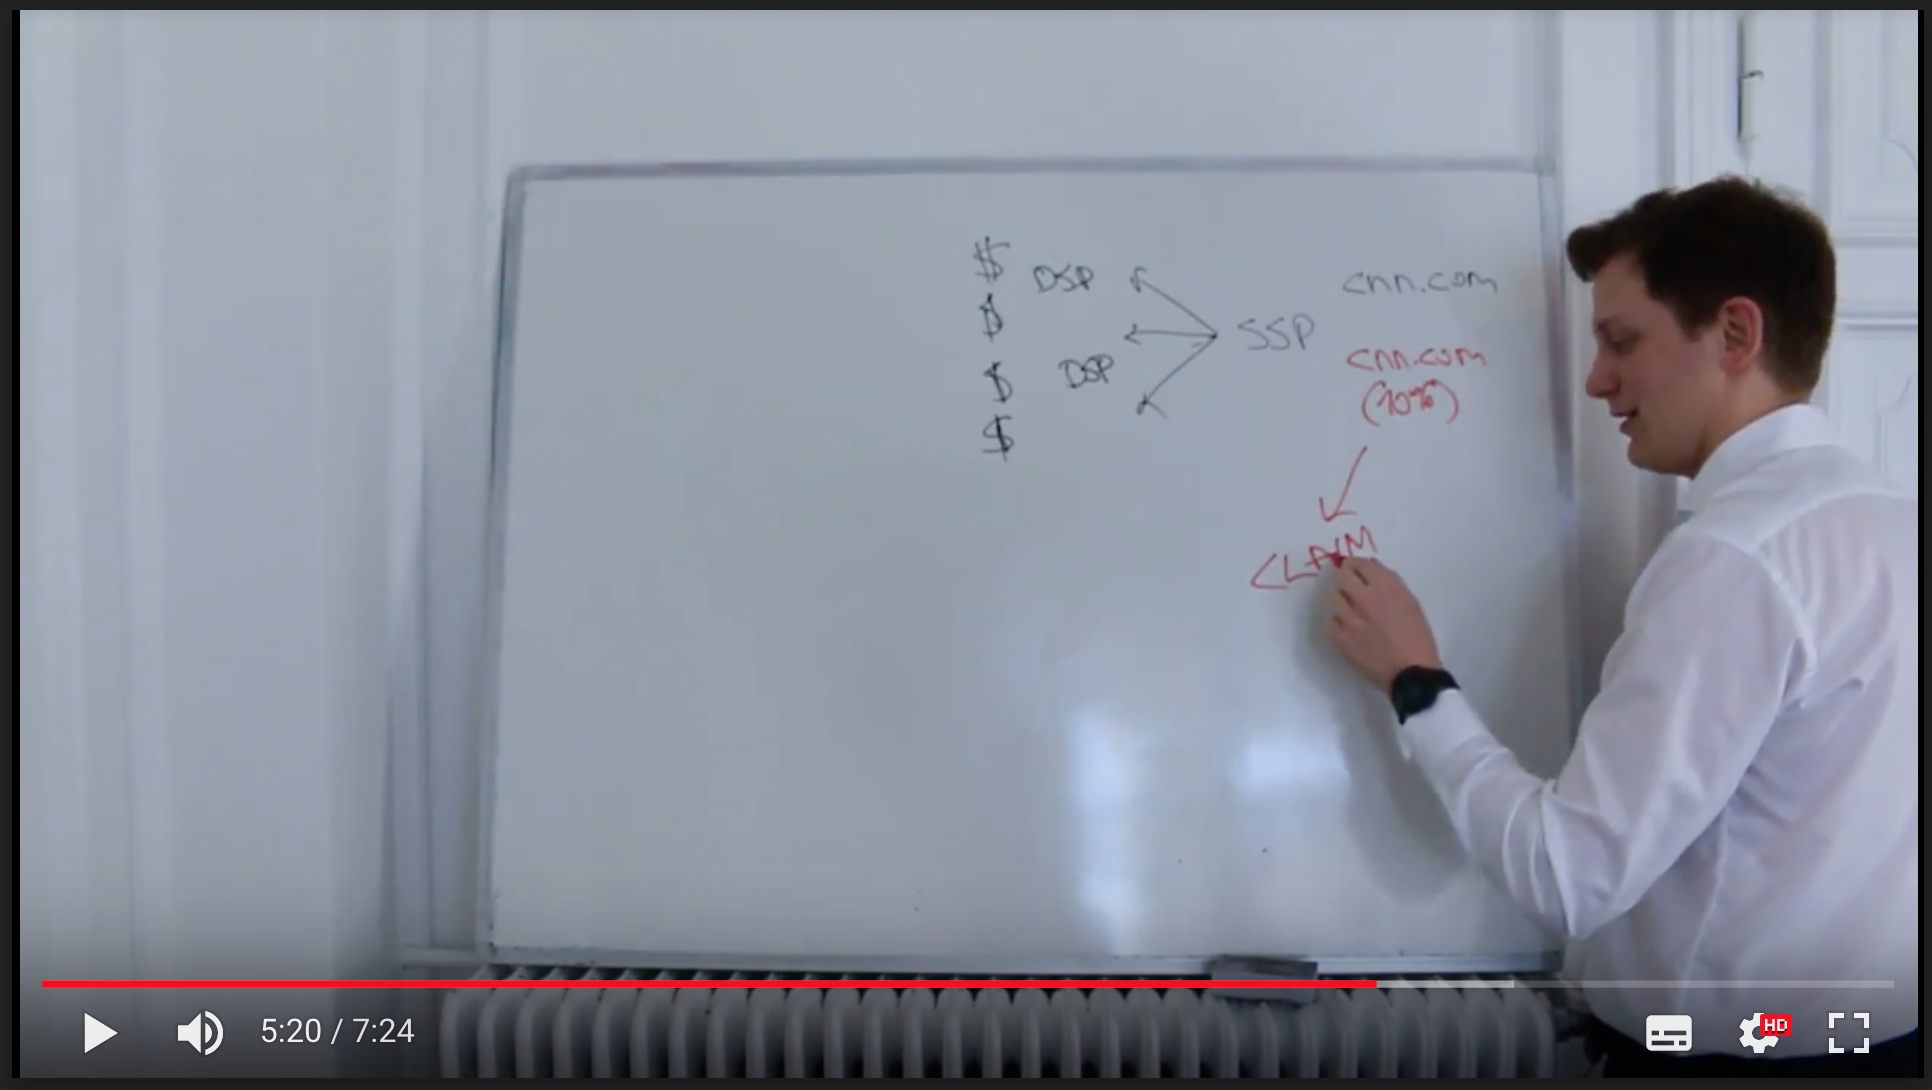 $ DSP
$
$ DSP
$
SSP
cnn.com
cnn.com
(10%)
CLAIM
5:20 / 7:24
HD